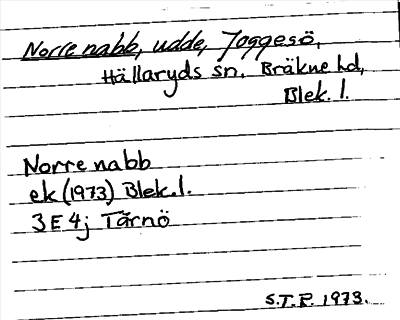 Norre nabb, udde, Joggesö,
Hällaryds sn. Bräkne hd,
Blek. l.
Norre nabb
ek (1973) Blek. l.
3 E 4j Tärnö
S.T.R. 1973.